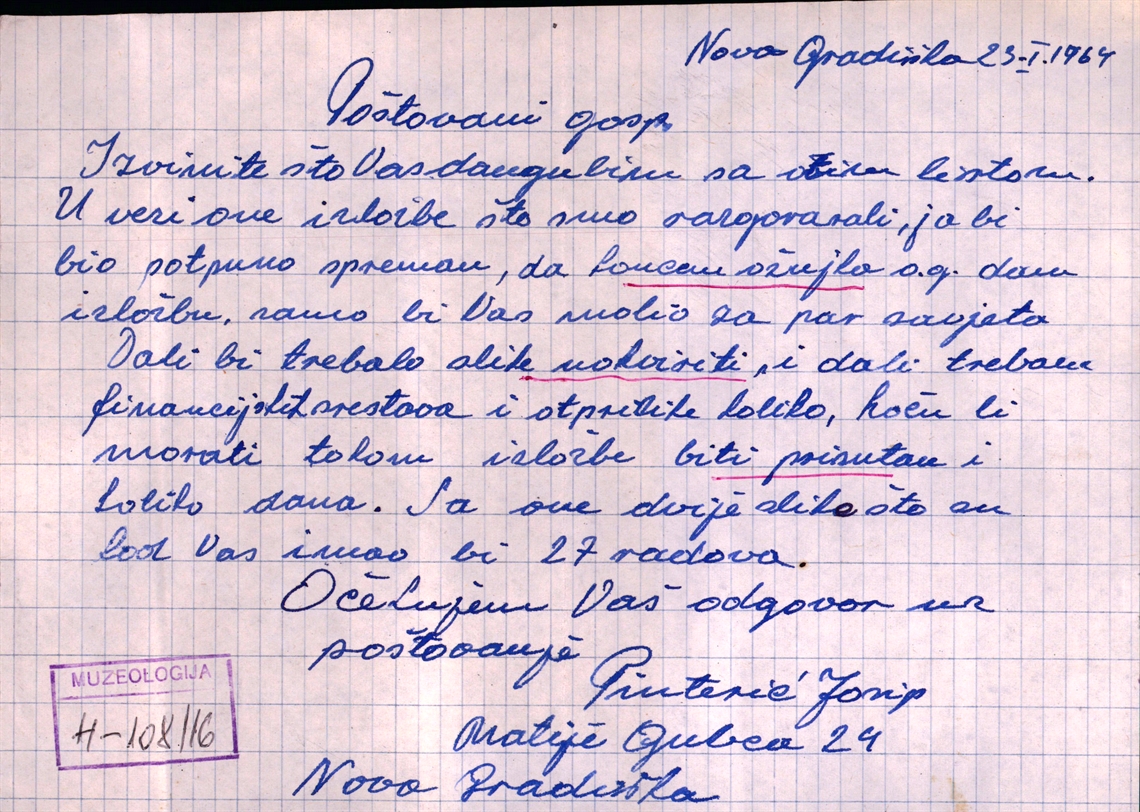 Nova Gradiška 23.I.1964
Poštovani gosp.
Izvinite što Vas dangubim sa ovim listom.
U vezi one izložbe što smo razgovarali, ja bi
bio potpuno spreman, da koncem ožujka o.g. dam
izložbu, samo bi Vas molio za par savjeta
Dali bi trebalo slike uokviriti, i dali trebam
financijskih srestava i otprilike koliko, hoću li
morati tokom izložbe biti prisutan i
koliko dana. Sa one dvije slike što su
kod Vas imao bi 27 radova.
Očekujem Vaš odgovor uz
poštovanje
Pinterić Josip
Matije Gubca 24
Nova Gradiška
MUZEOLOGIJA
H-108/16